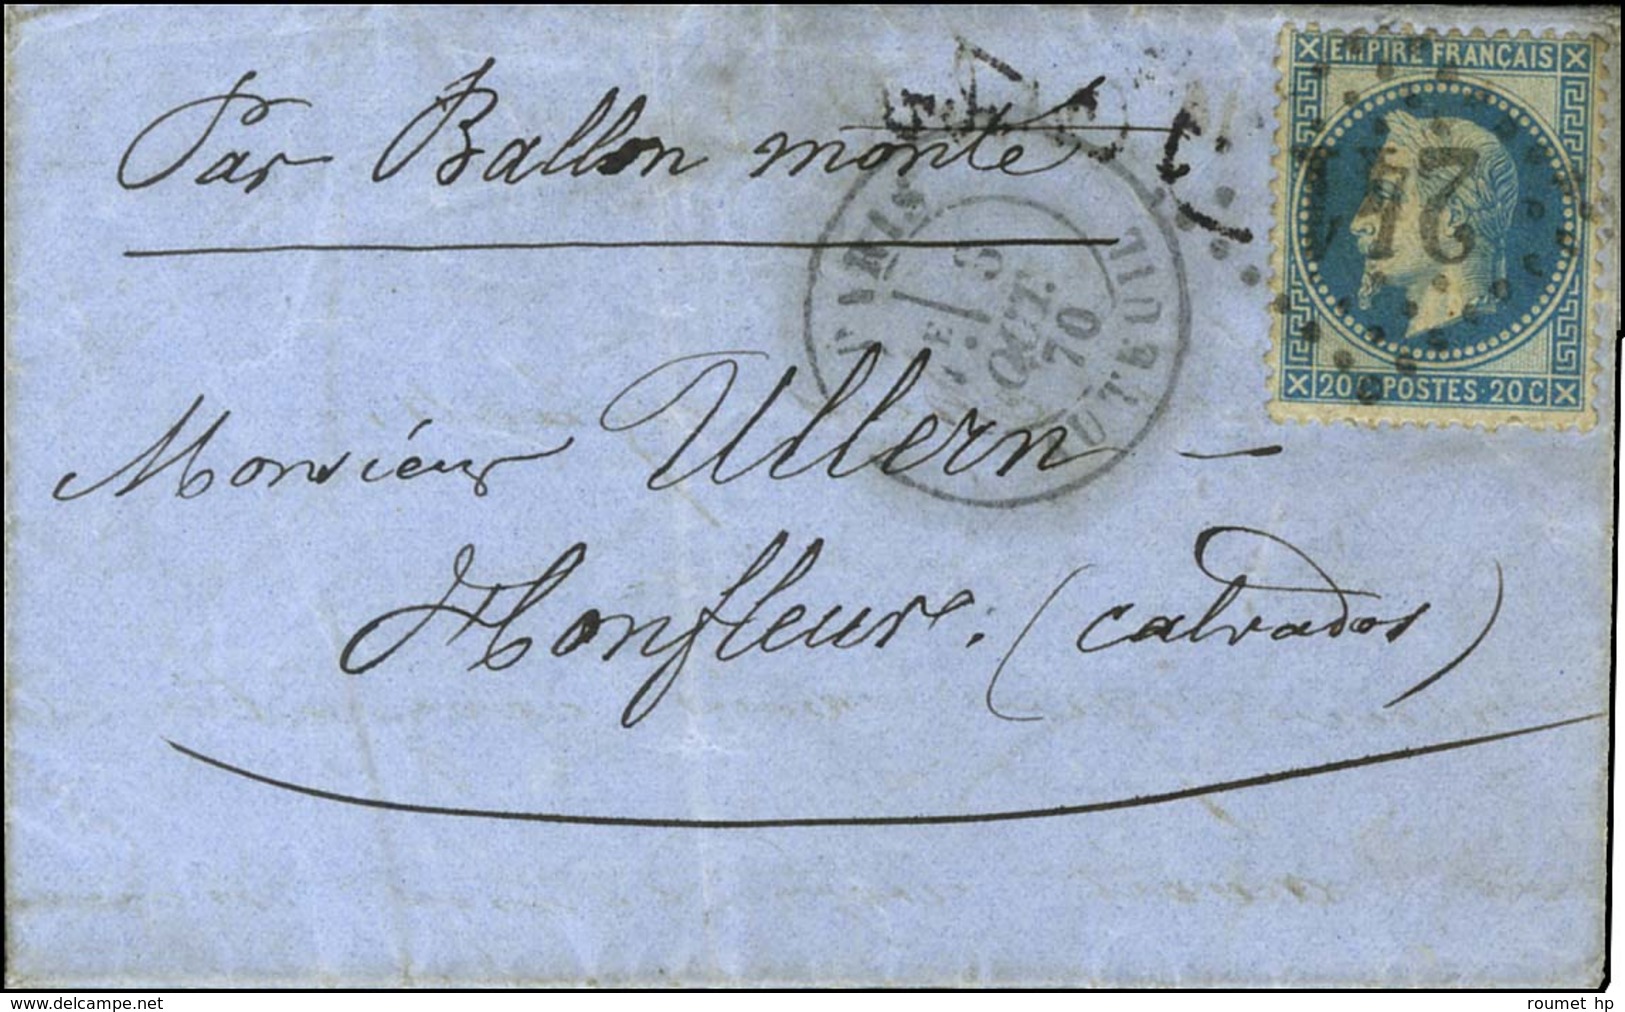 Par Ballon monté
EMPIRE FRANÇAIS
20 C POSTES 20 C
PARIS
AUTEUIL
5
OCT.
70
Monsieur Ullern
Honfleur. (Calvados)
roumet hp